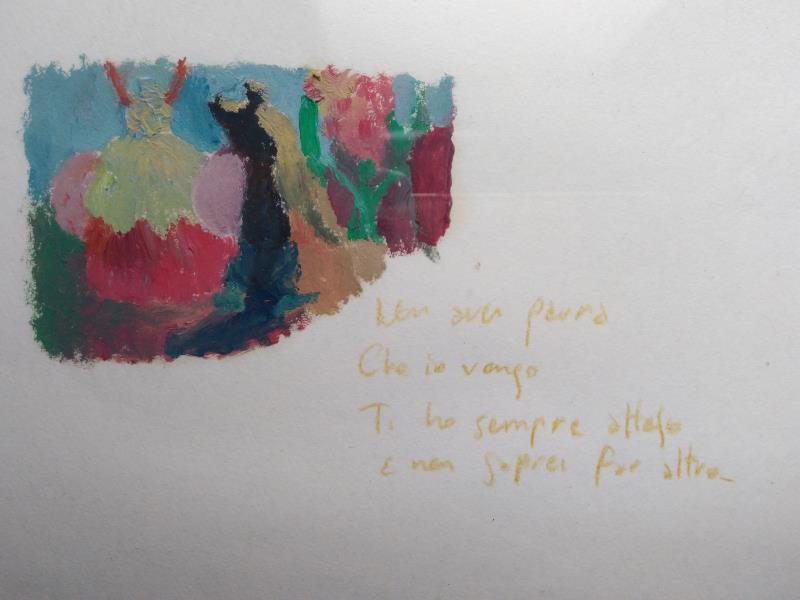 Non aver paura
Che io vengo
Ti ho sempre atteso
e non saprei far altro_